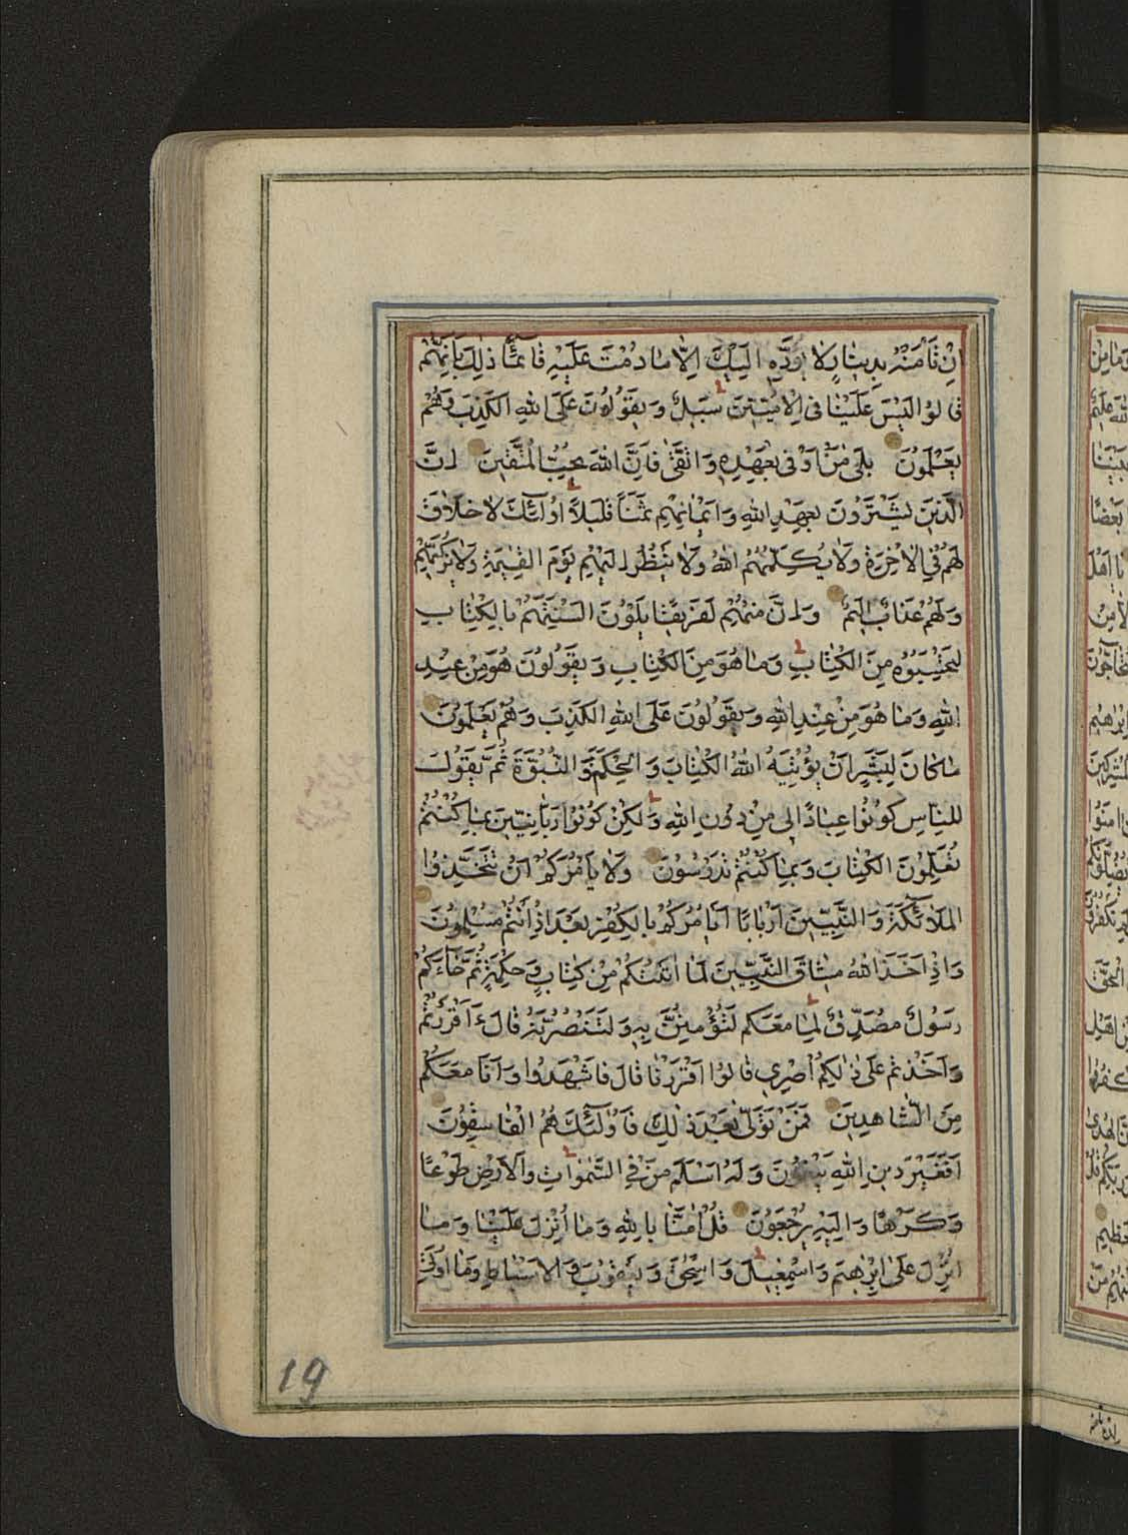 اِنْ تَأْمَنْهُ بِدِينَارٍ لَا يُؤَدِّهِ اِلَيْكَ اِلَّا مَا دُمْتَ عَلَيْهِ قَائِمًا ذٰلِكَ بِاَنَّهُمْ
قَالُوا لَيْسَ عَلَيْنَا فِى الْاُمِّيِّينَ سَبِيلٌ وَيَقُولُونَ عَلَى اللهِ الْكَذِبَ وَهُمْ
يَعْلَمُونَ بَلٰى مَنْ اَوْفٰى بِعَهْدِهِ وَاتَّقٰى فَاِنَّ اللهَ يُحِبُّ الْمُتَّقِينَ اِنَّ
الَّذِينَ يَشْتَرُونَ بِعَهْدِ اللهِ وَاَيْمَانِهِمْ ثَمَنًا قَلِيلًا اُولٰئِكَ لَا خَلَاقَ
لَهُمْ فِى الْاٰخِرَةِ وَلَا يُكَلِّمُهُمُ اللهُ وَلَا يَنْظُرُ اِلَيْهِمْ يَوْمَ الْقِيٰمَةِ وَلَا يُزَكِّيهِمْ
وَلَهُمْ عَذَابٌ اَلِيمٌ وَاِنَّ مِنْهُمْ لَفَرِيقًا يَلْوُونَ اَلْسِنَتَهُمْ بِالْكِتَابِ
لِتَحْسَبُوهُ مِنَ الْكِتَابِ وَمَا هُوَ مِنَ الْكِتَابِ وَيَقُولُونَ هُوَ مِنْ عِنْدِ
اللهِ وَمَا هُوَ مِنْ عِنْدِ اللهِ وَيَقُولُونَ عَلَى اللهِ الْكَذِبَ وَهُمْ يَعْلَمُونَ
مَا كَانَ لِبَشَرٍ اَنْ يُؤْتِيَهُ اللهُ الْكِتَابَ وَالْحُكْمَ وَالنُّبُوَّةَ ثُمَّ يَقُولَ
لِلنَّاسِ كُونُوا عِبَادًا لِى مِنْ دُونِ اللهِ وَلٰكِنْ كُونُوا رَبَّانِيِّينَ بِمَا كُنْتُمْ
تُعَلِّمُونَ الْكِتَابَ وَبِمَا كُنْتُمْ تَدْرُسُونَ وَلَا يَأْمُرَكُمْ اَنْ تَتَّخِذُوا
الْمَلَائِكَةَ وَالنَّبِيِّينَ اَرْبَابًا اَيَأْمُرُكُمْ بِالْكُفْرِ بَعْدَ اِذْ اَنْتُمْ مُسْلِمُونَ
وَاِذْ اَخَذَ اللهُ مِيثَاقَ النَّبِيِّينَ لَمَا اٰتَيْتُكُمْ مِنْ كِتَابٍ وَحِكْمَةٍ ثُمَّ جَاءَكُمْ
رَسُولٌ مُصَدِّقٌ لِمَا مَعَكُمْ لَتُؤْمِنُنَّ بِهِ وَلَتَنْصُرُنَّهُ قَالَ ءَاَقْرَرْتُمْ
وَاَخَذْتُمْ عَلٰى ذٰلِكُمْ اِصْرِى قَالُوا اَقْرَرْنَا قَالَ فَاشْهَدُوا وَاَنَا مَعَكُمْ
مِنَ الشَّاهِدِينَ فَمَنْ تَوَلّٰى بَعْدَ ذٰلِكَ فَاُولٰئِكَ هُمُ الْفَاسِقُونَ
اَفَغَيْرَ دِينِ اللهِ يَبْغُونَ وَلَهُ اَسْلَمَ مَنْ فِى السَّمٰوَاتِ وَالْاَرْضِ طَوْعًا
وَكَرْهًا وَاِلَيْهِ يُرْجَعُونَ قُلْ اٰمَنَّا بِاللهِ وَمَا اُنْزِلَ عَلَيْنَا وَمَا
اُنْزِلَ عَلٰى اِبْرٰهِيمَ وَاِسْمٰعِيلَ وَاِسْحٰقَ وَيَعْقُوبَ وَالْاَسْبَاطِ وَمَا اُوتِىَ
19